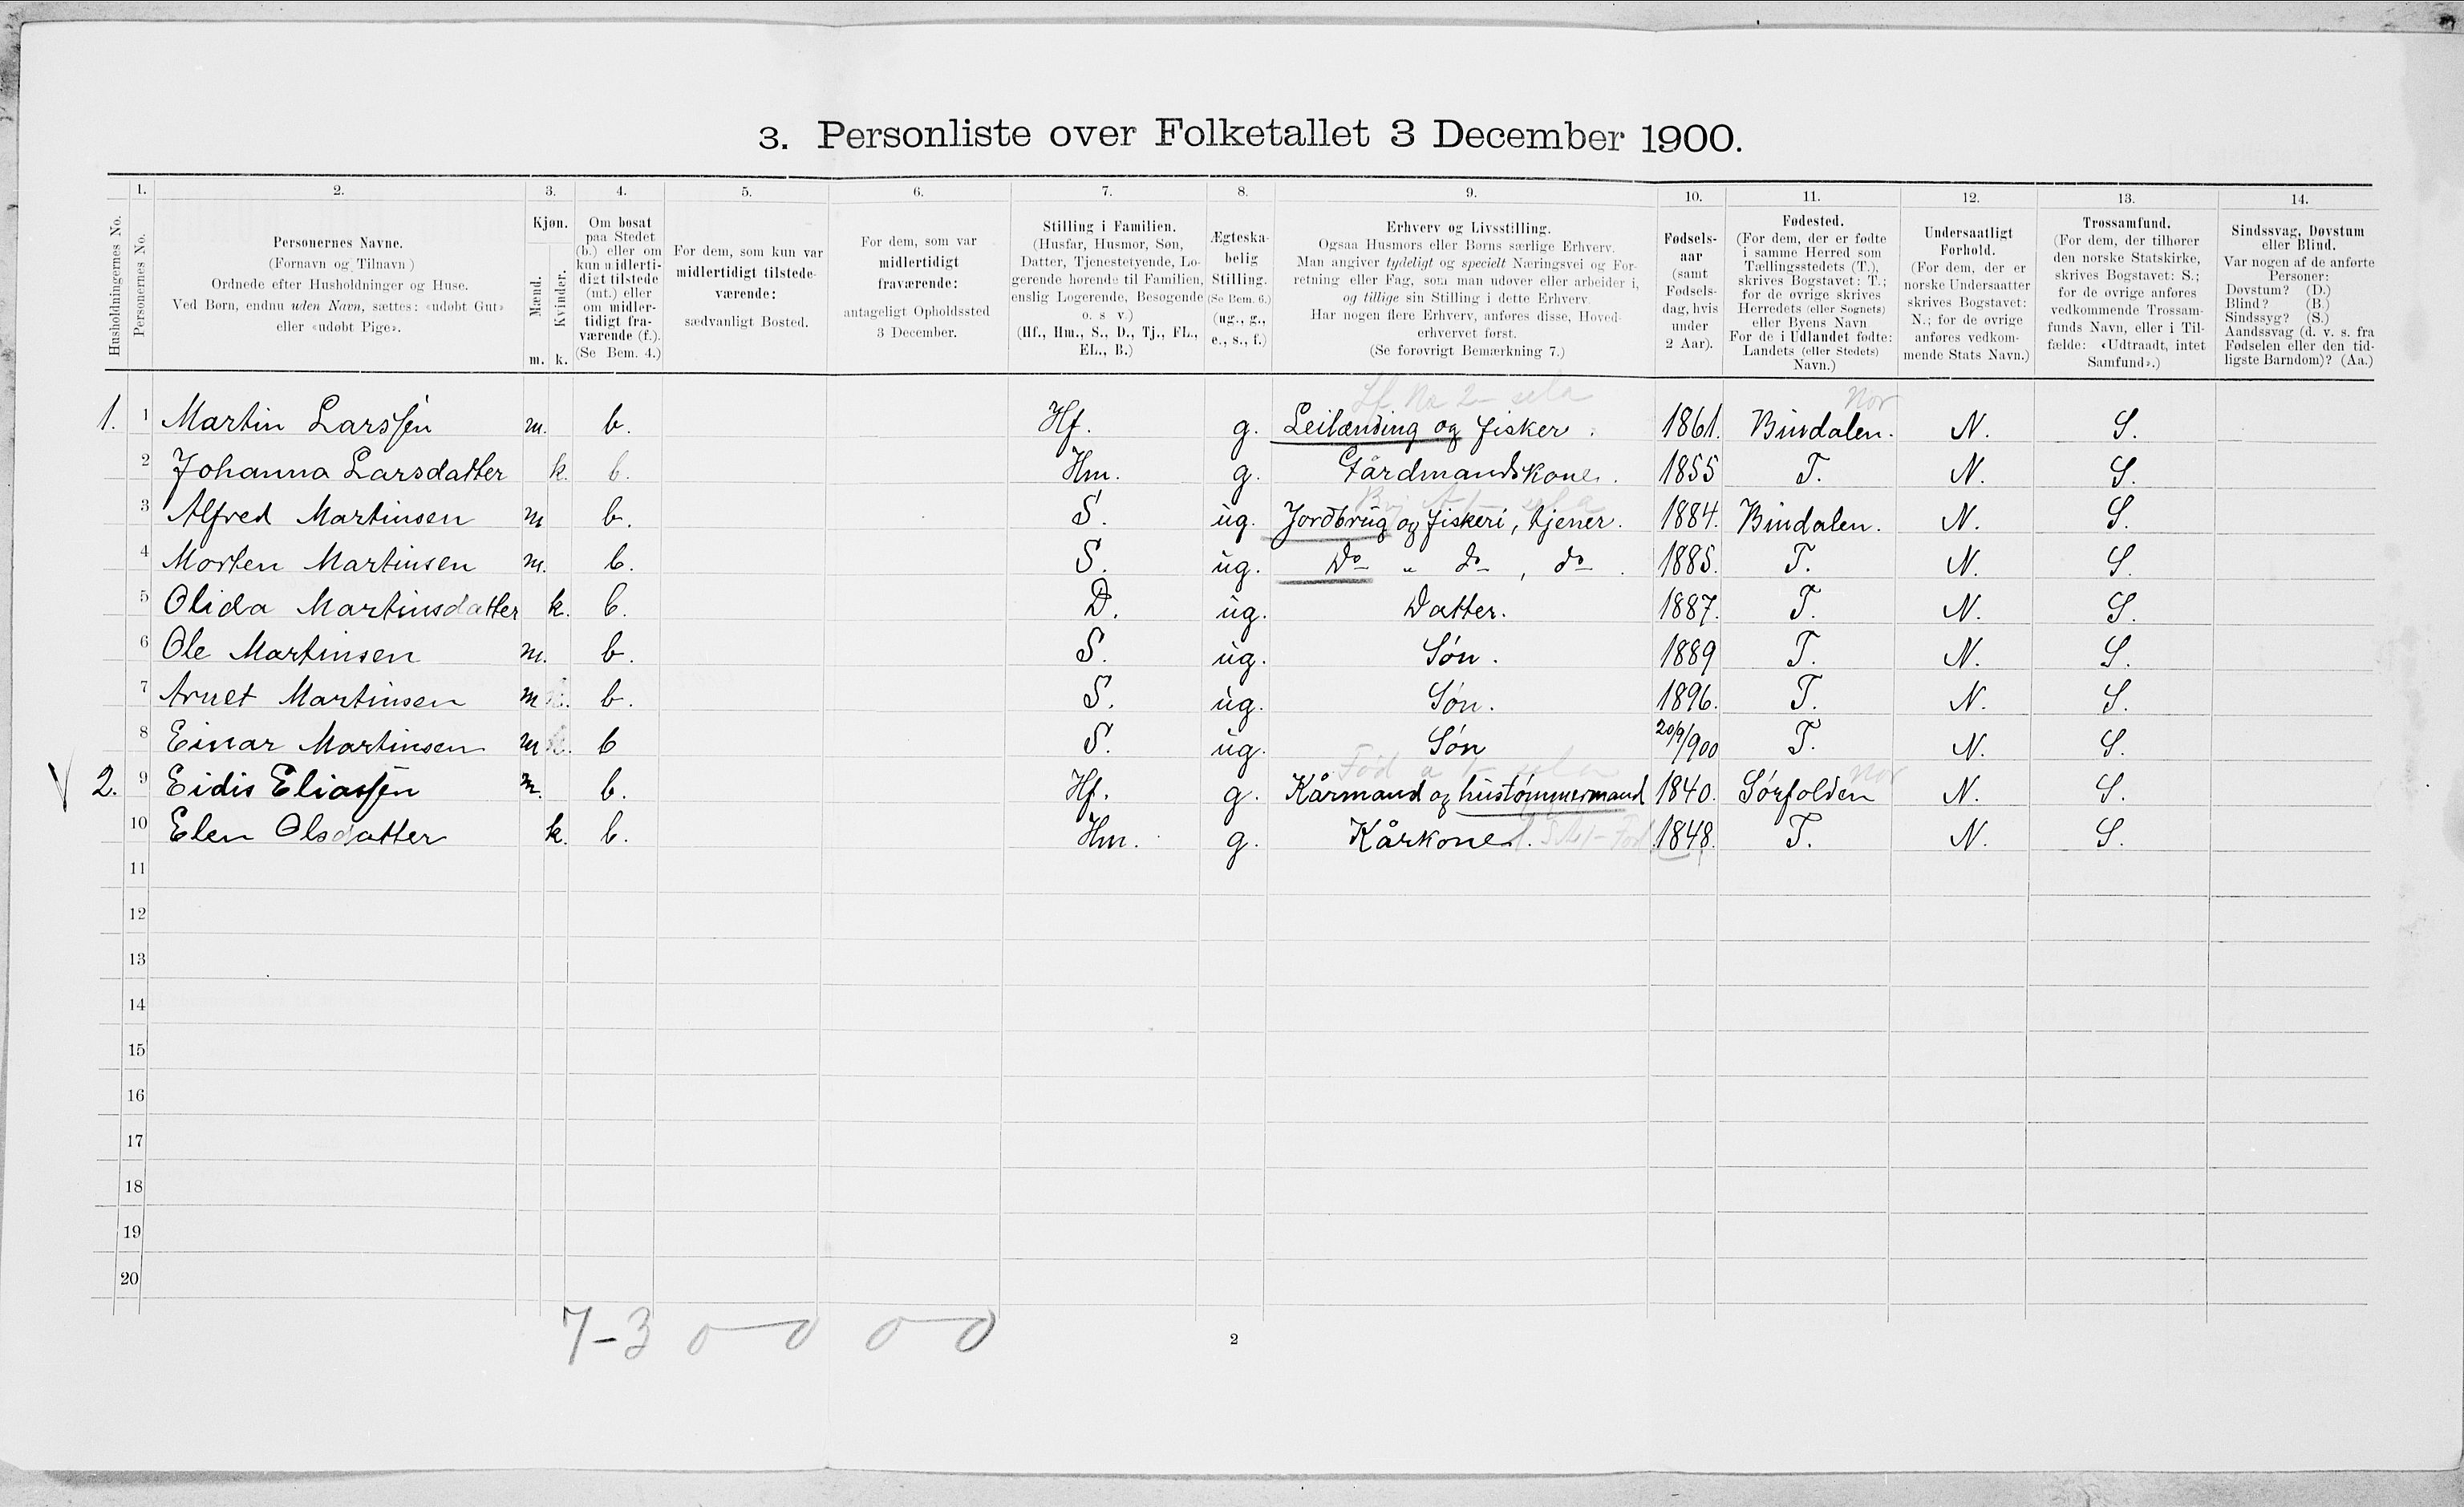 3. Personliste over Folketallet 3 December 1900.
1. 2. 3. 4. 5. 6. 7. 8. 9. 10. 11. 12. 13. 14.
Husholdningernes No.
Personernes No.
Personernes Navne.
(Fornavn og Tilnavn)
Ordnede efter Husholdninger og Huse.
Ved Børn, endnu uden Navn, sættes: «udøbt Gut»
eller «udøbt Pige».
Kjøn.
Mænd.
Kvinder.
m. k.
Om bosat
paa Stedet
(b.) eller om
kun midlerti-
digt tilstede
(mt.) eller
om midler-
tidigt fra-
værende (f.).
(Se Bem. 4.)
For dem, som kun var
midlertidigt tilstede-
værende:
sædvanligt Bosted.
For dem, som var
midlertidigt
fraværende:
antageligt Opholdssted
3 December.
Stilling i Familien.
(Husfar, Husmor, Søn,
Datter, Tjenestetyende, Lo-
gerende hørende til Familien,
enslig Logerende, Besøgende
o. s v.)
(Hf., Hm., S., D., Tj., FL.,
EL., B.)
Ægteska-
belig
Stilling.
(Se Bem. 6.)
(ug., g.,
e., s., f.)
Erhverv og Livsstilling.
Ogsaa Husmors eller Børns særlige Erhverv.
Man angiver tydeligt og specielt Næringsvei og For-
retning eller Fag, som man udøver eller arbeider i,
og tillige sin Stilling i dette Erhverv.
Har nogen flere Erhverv, anføres disse, Hoved-
erhvervet først.
(Se forøvrigt Bemærkning 7.)
Fødsels-
aar
(samt
Fødsels-
dag, hvis
under
2 Aar).
Fødested.
(For dem, der er fødte
i samme Herred som
Tællingsstedets (T.),
skrives Bogstavet: T.;
for de øvrige skrives
Herredets (eller Sognets)
eller Byens Navn
For de i Udlandet fødte:
Landets (eller Stedets)
Navn.)
Undersaatligt
Forhold.
(For dem, der er
norske Undersaatter
skrives Bogstavet:
N.; for de øvrige
anføres vedkom-
mende Stats Navn.)
Trossamfund.
(For dem, der tilhører
den norske Statskirke,
skrives Bogstavet: S.;
for de øvrige anføres
vedkommende Trossam-
funds Navn, eller i Til-
fælde: «Udtraadt, intet
Samfund».)
Sindssvag, Døvstum
eller Blind.
Var nogen af de anførte
Personer:
Døvstum? (D.)
Blind? (B.)
Sindssyg? (S.)
Aandssvag (d. v. s. fra
Fødselen eller den tid-
ligste Barndom)? (Aa.)
Nor
1. 1 Martin Larssen m. b. Hf. g. Leilænding og fisker. 1861. Bindalen. N. S.
2 Johanna Larsdatter k. b. Hm. g. Gårdmandskone. 1855 T. N. S.
3 Alfred Martinsen m b. S. ug. Jordbrug og fiskeri, tjener. 1884. Bindalen. N. S.
4 Morten Martinsen m. b. S. ug. Do " do, do. 1885. T. N. S.
5 Olida Martinsdatter k. b. D. ug. Datter. 1887. T. N. S.
6 Ole Martinsen m. b. S. ug. Søn. 1889 T. N. S.
7 Arnet Martinsen m b. S. ug. Søn. 1896. T. N. S.
8 Einar Martinsen m b S. ug. Søn 20/9/900 T. N. S.
Nor
V 2. 9 Eidis Eliassen m. b. Hf. g. Kårmand og hustømmermand 1840. Sørfolden N. S.
10 Elen Olsdatter k. b. Hm. g. Kårkone. 1848. T. N. S.
11
12
13
14
15
16
17
18
19
20
7-3 0-0 0-0
2